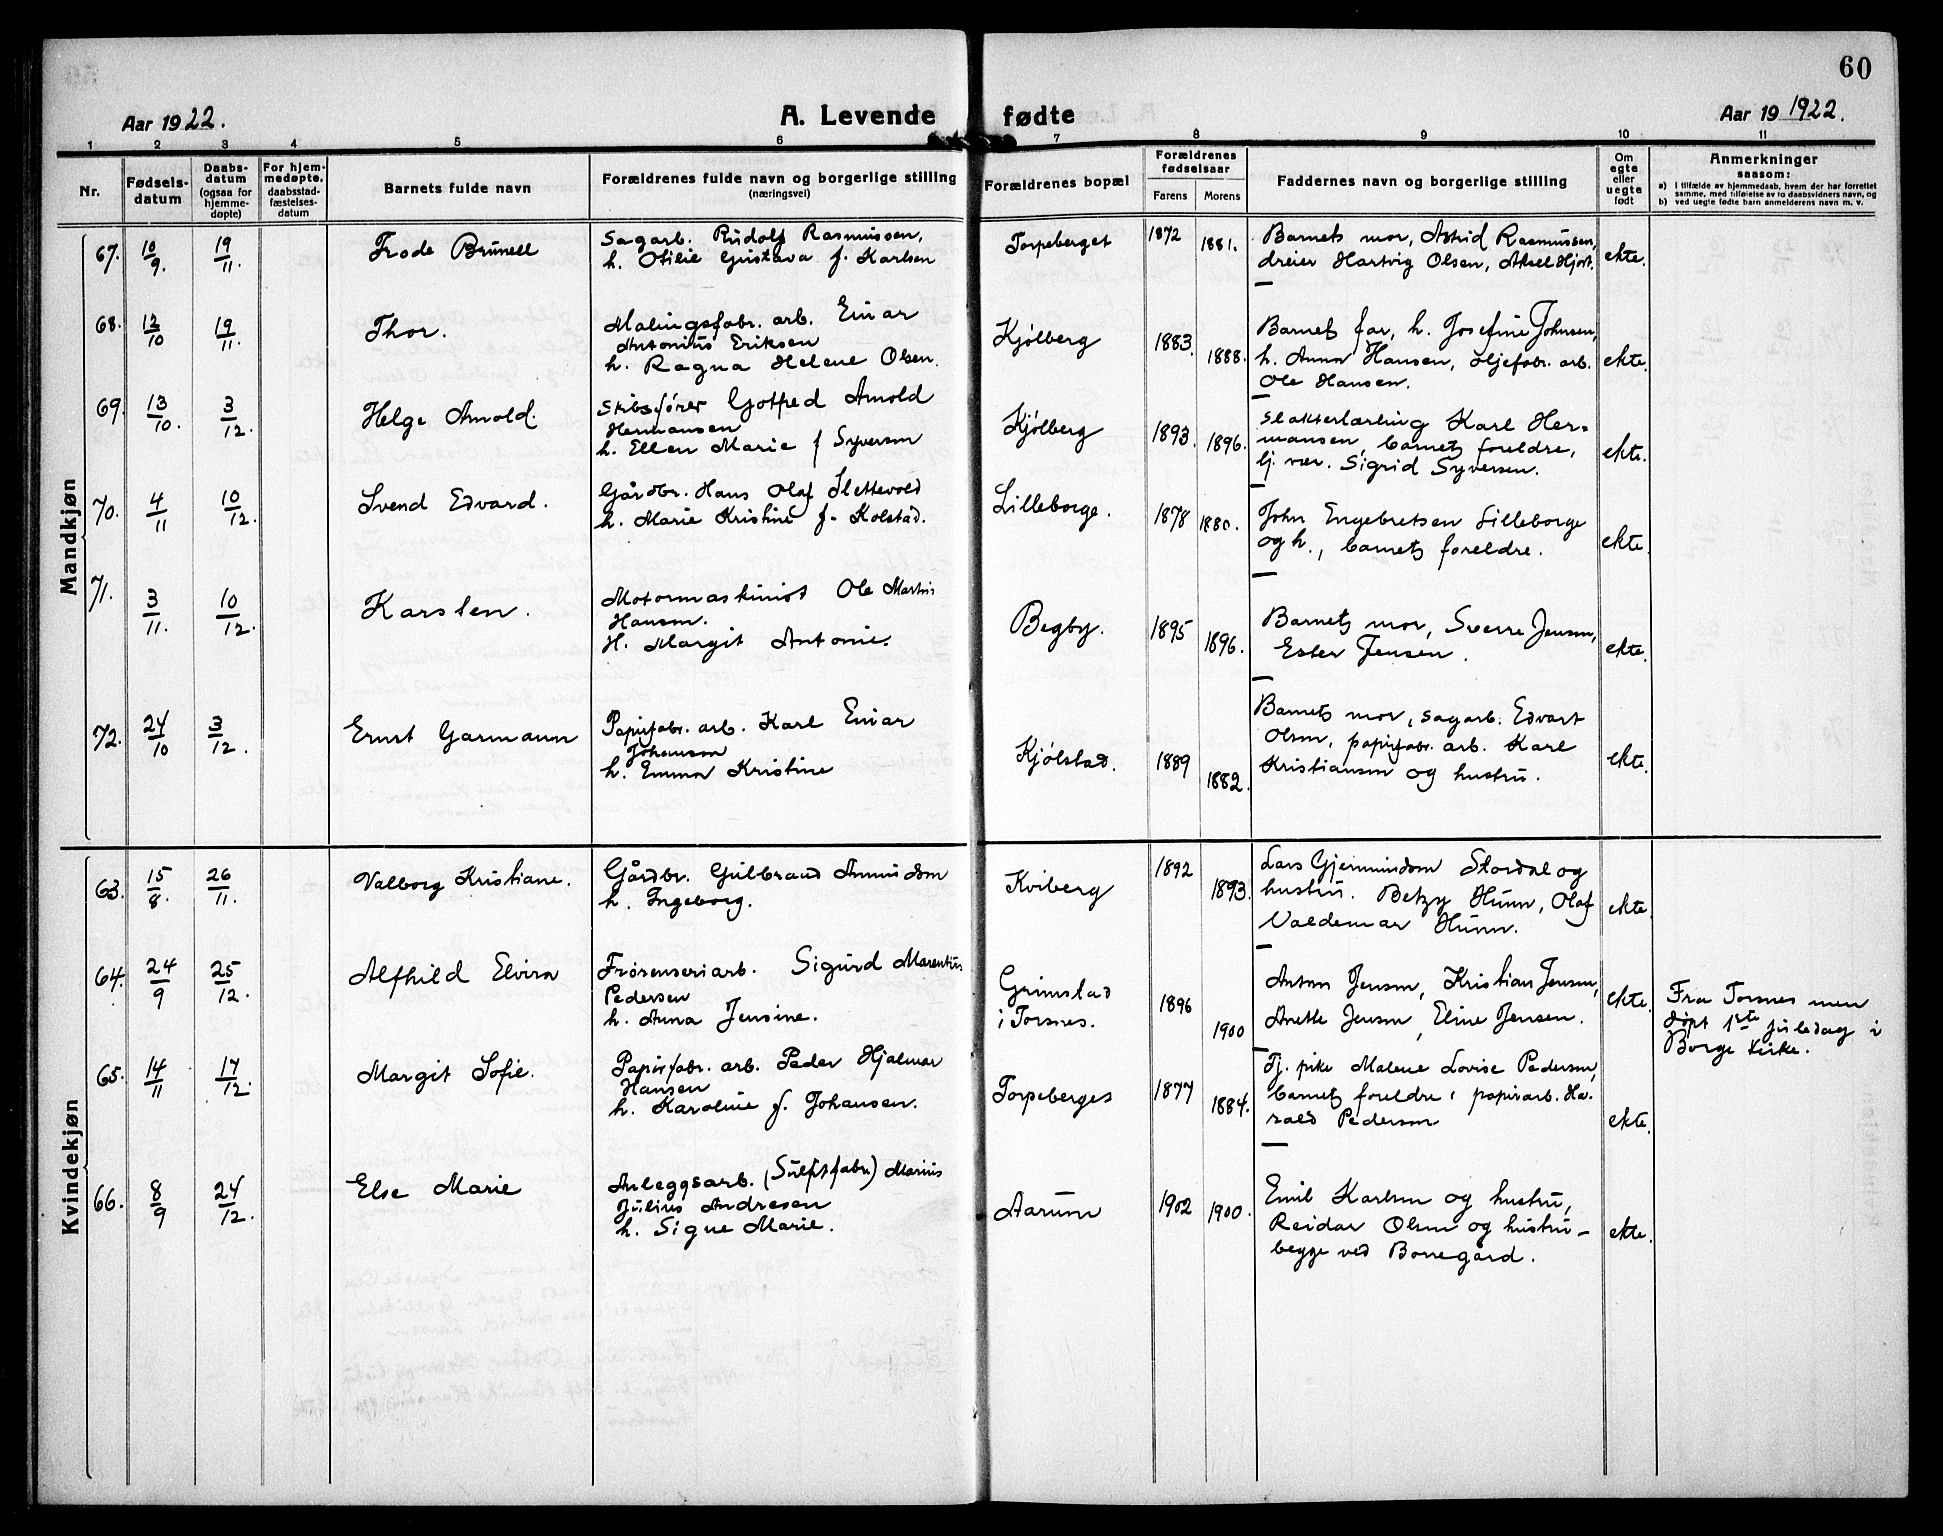 60
Aar 1922.
A. Levende fødte
Aar 19 1922.
1 2 3 4 5 6 7 8 9 10 11
Nr.
Fødsels-
datum
Daabs-
datum
(ogsaa for
hjemme-
døpte)
For hjem-
medøpte.
daabsstad-
fæstelses-
datum
Barnets fulde navn
Forældrenes fulde navn og borgerlige stilling
(næringsvei)
Forældrenes bopæl
Forældrenes
fødselsaar
Farens Morens
Faddernes navn og borgerlige stilling
Om
egte
eller
uegte
født
Anmerkninger
saasom:
a) i tilfælde av hjemmedaab, hvem der har forrettet
samme, med tilføielse av to daabsvidners navn, og
b) ved uegte fødte barn anmelderens navn m. v.
Mandkjøn
67. 10/9. 19/11. Frode Brunell
Sagarb. Rudolf Rasmussen,
h. Otilie Gustava f. Karlsen
Torpeberget 1872 1881.
Barnets mor, Astrid Rasmussen,
dreier Hartvig Olsen, Aksel Hjort.
ekte.
68. 12/10 19/11. Thor.
Malingsfabr. arb. Einar
Antonius Eriksen
h. Ragna Helene Olsen.
Kjølberg 1883. 1888.
Barnets far, h. Josefine Johnsen,
h. Anna Hansen, oljefabr. arb.
Ole Hansen.
ekte.
69. 13/10. 3/12. Helge Arnold.
Skibsfører Gotfred Arnold
Hermansen
h. Ellen Marie f Syversen
Kjølberg 1893. 1896.
Slakterlærling Karl Her-
mansen, barnets foreldre,
lj. vær. Sigrid Syversen.
ekte.
70. 4/11 10/12. Svend Edvard.
Gårdbr. Hans Olaf Slettevold
h. Marie Kristine f. Kolstad.
Lilleborge. 1878 1880.
John Engebretsen Lilleborge
og h., barnets foreldre.
ekte.
71. 3/11. 10/12. Karsten.
Motormaskinist Ole Martin
Hansen.
H. Margit Antonie.
Begby. 1895 1896.
Barnets mor, Sverre Jensen,
Ester Jensen.
ekte.
72. 24/10 3/12. Ernst Garmann
Papirfabr. arb. Karl Einar
Johansen
h. Emma Kristine
Kjølstad. 1889 1882.
Barnets mor, sagarb. Edvart
Olsen, papirfabr. arb. Karl
Kristiansen og hustru.
ekte.
Kvindekjøn
63. 15/8. 26/11. Valborg Kristiane.
Gårdbr. Gulbrand
h. Ingeborg.
Kviberg 1892 1893.
Lars Gjermundsen Stordal og
hustru. Betzy Hunn, Olaf
Valdemar Hunn.
ekte.
64. 24/9 25/12. Alfhild Elvira
Sigurd Marentius
Pedersen
h. Anna Jensine.
Grimstad
i Torsnes. 1896 1900
Anton Jensen, Kristian Jensen,
Anette Jensen, Eline Jensen.
ekte.
Fra Torsnes men
døpt 1ste juledag i
Borge kirke.
65. 14/11 17/12. Margit Sofie.
Papirfabr. arb. Peder Hjalmar
Hansen
h. Karoline f. Johansen.
Torpeberges 1877 1884.
Tj. pike Malene Lovise Pedersen,
barnets foreldre, papirarb. Ha-
rald Pedersen
ekte.
66. 8/9 24/12. Else Marie
Anleggsarb. (Sulfitfabr.) Marius
Julius Andresen
h. Signe Marie.
Aarum 1902 1900.
Emil Karlsen og hustru,
Reidar Olsen og hustru -
begge ved Borregård.
ekte.